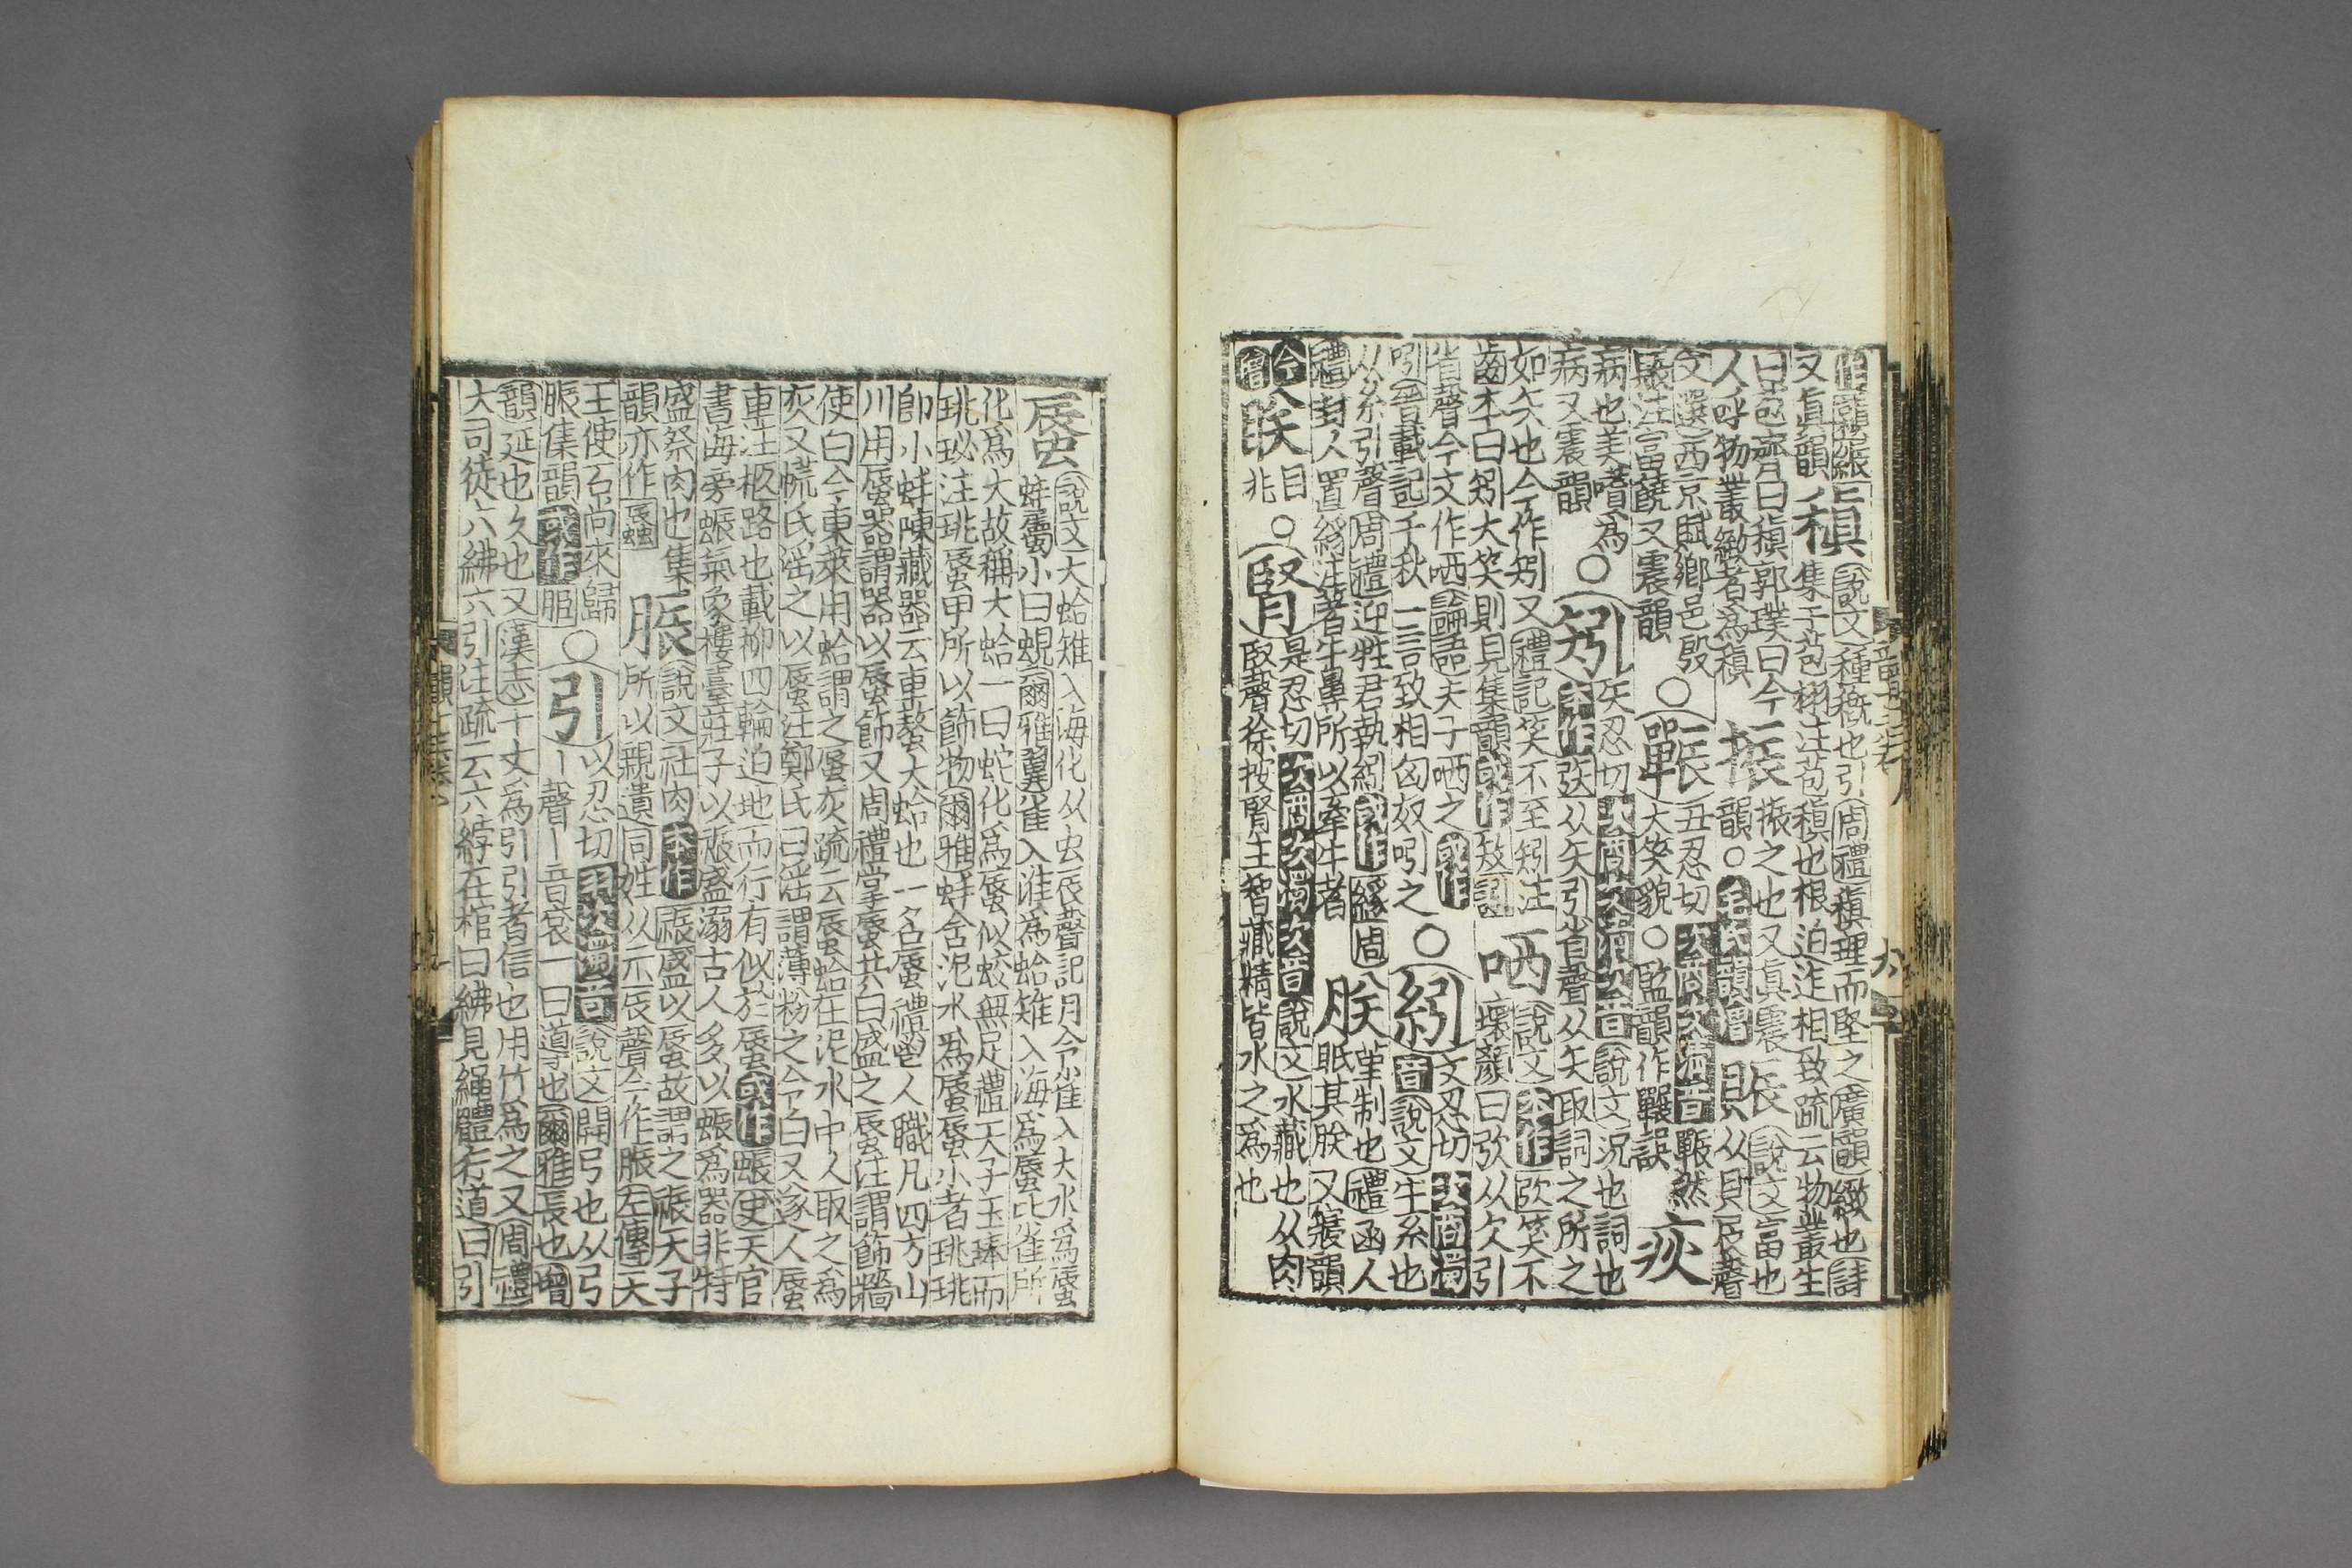 作䪴縝稹說文種穊也引周禮稹理而堅之廣韻緻也詩
又眞韻稹集于苞栩注苞稹也根迫迮相致疏云物叢生
曰苞齊人曰稹郭璞曰今振振之也又眞震賑說文富也
人呼物叢緻者爲稹韻○毛氏韻增賑从貝辰聲
文選西京賦鄉邑殷○囅丑忍切次商次清音囅然疢
賑注富饒又震韻大笑貌○監韻作囅誤
病也美嗜爲○矧矢忍切次商次清次音說文況也詞也
病又震韻本作弞从矢引省聲从矢取詞之所之
如矢也今作矧又禮記笑不至矧注哂說文本作弞笑不
齒本曰矧大笑則見集韻或作壞顏曰弞从欠引
省聲今文作哂論語夫子哂之或作○紖丈忍切次商濁
吲晉載記千秋一言致相匈奴吲之音說文牛系也
从糸引聲周禮迎牲君執紖或作周朕堇制也禮函人
禮封人置絼注著牛鼻所以牽牛者眡其朕又寢韻
今增眹目兆○腎是忍切次商次濁次音說文水藏也从肉
臤聲徐按腎主智藏精皆水之爲也
蜃說文大蛤雉入海化从虫辰聲記月令雀入大水爲蜃
蚌屬小曰蜆爾雅翼雀入淮爲蛤雉入海爲蜃比雀所
化爲大故稱大蛤一曰蛇化爲蜃似蛟無足禮天子玉琫而
珧珌注珧蜃甲所以飾物爾雅蚌含泥水爲蜃蜃小者珧珧
卽小蚌陳藏器云車螯大蛤也一名蜃禮鬯人職凡四方山
川用蜃器謂器以蜃飾又周禮掌蜃共白盛之蜃注謂飾牆
使白今東萊用蛤謂之蜃灰疏云蜃蛤在泥水中人取之爲
灰又㡛氏淫之以蜃注鄭氏曰淫謂薄粉之令白又遂人蜃
車注柩路也載柳四輪迫地而行有似於蜃或作蜄史天官
書海旁蜄氣象樓臺莊子以蜄盛溺古人多以蜄爲器非特
盛祭肉也集脤說文社肉本作祳盛以蜃故謂之祳天子
韻亦作蜄所以親遺同姓从示辰聲今作脤左傳天
王使石尚來歸○引以忍切羽次濁音說文開弓也从弓
脤集韻或作丨聲丨音袞一曰導也爾雅長也增
韻延也久也又漢志十丈爲引引者信也用竹爲之又周禮
大司徒六紼六引注疏云六綍在棺曰紼見繩體行道曰引